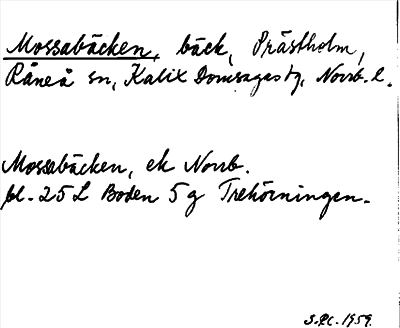 Mossabäcken, bäck, Prästholm,
Råneå sn, Kalix Domsagas tg, Norrb. l.
Mossabäcken, ek Norrb.
bl. 25 L Boden 5 g Trehörningen.
1959.